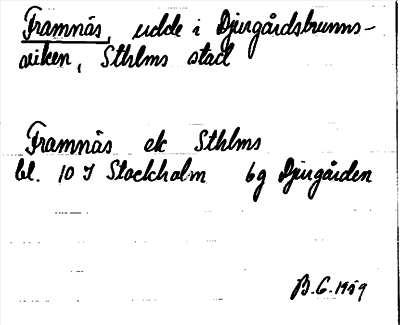 Framnäs, udde i Djurgårdsbrunns-
viken, Sthlms stad
Framnäs ek Sthlms
bl. 10 I Stockholm 6g Djurgården
B.G. 1959